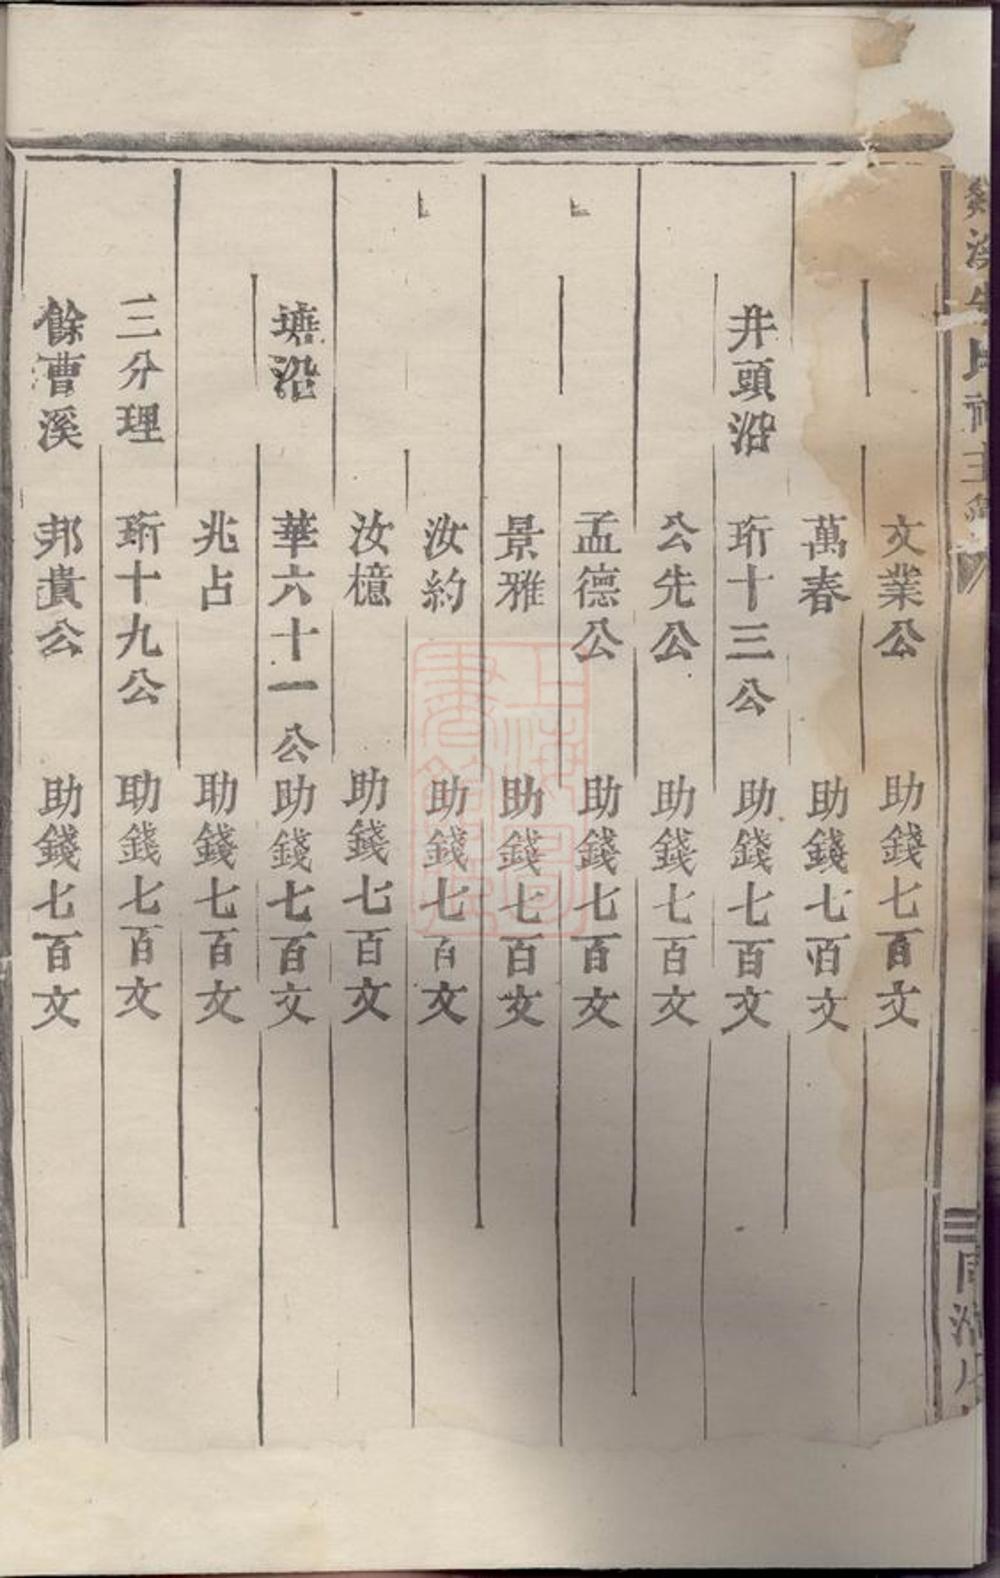 文業公 助錢七百文
萬春 助錢七百文
井頭沿 珩十三公 助錢七百文
公先公 助錢七百文
孟德公 助錢七百文
景雅 助錢七百文
汝約 助錢七百文
汝檍 助錢七百文
塘沿 華六十一公 助錢七百文
兆占 助錢七百文
三分理 珩十九公 助錢七百文
餘曹溪 邦貴公 助錢七百文